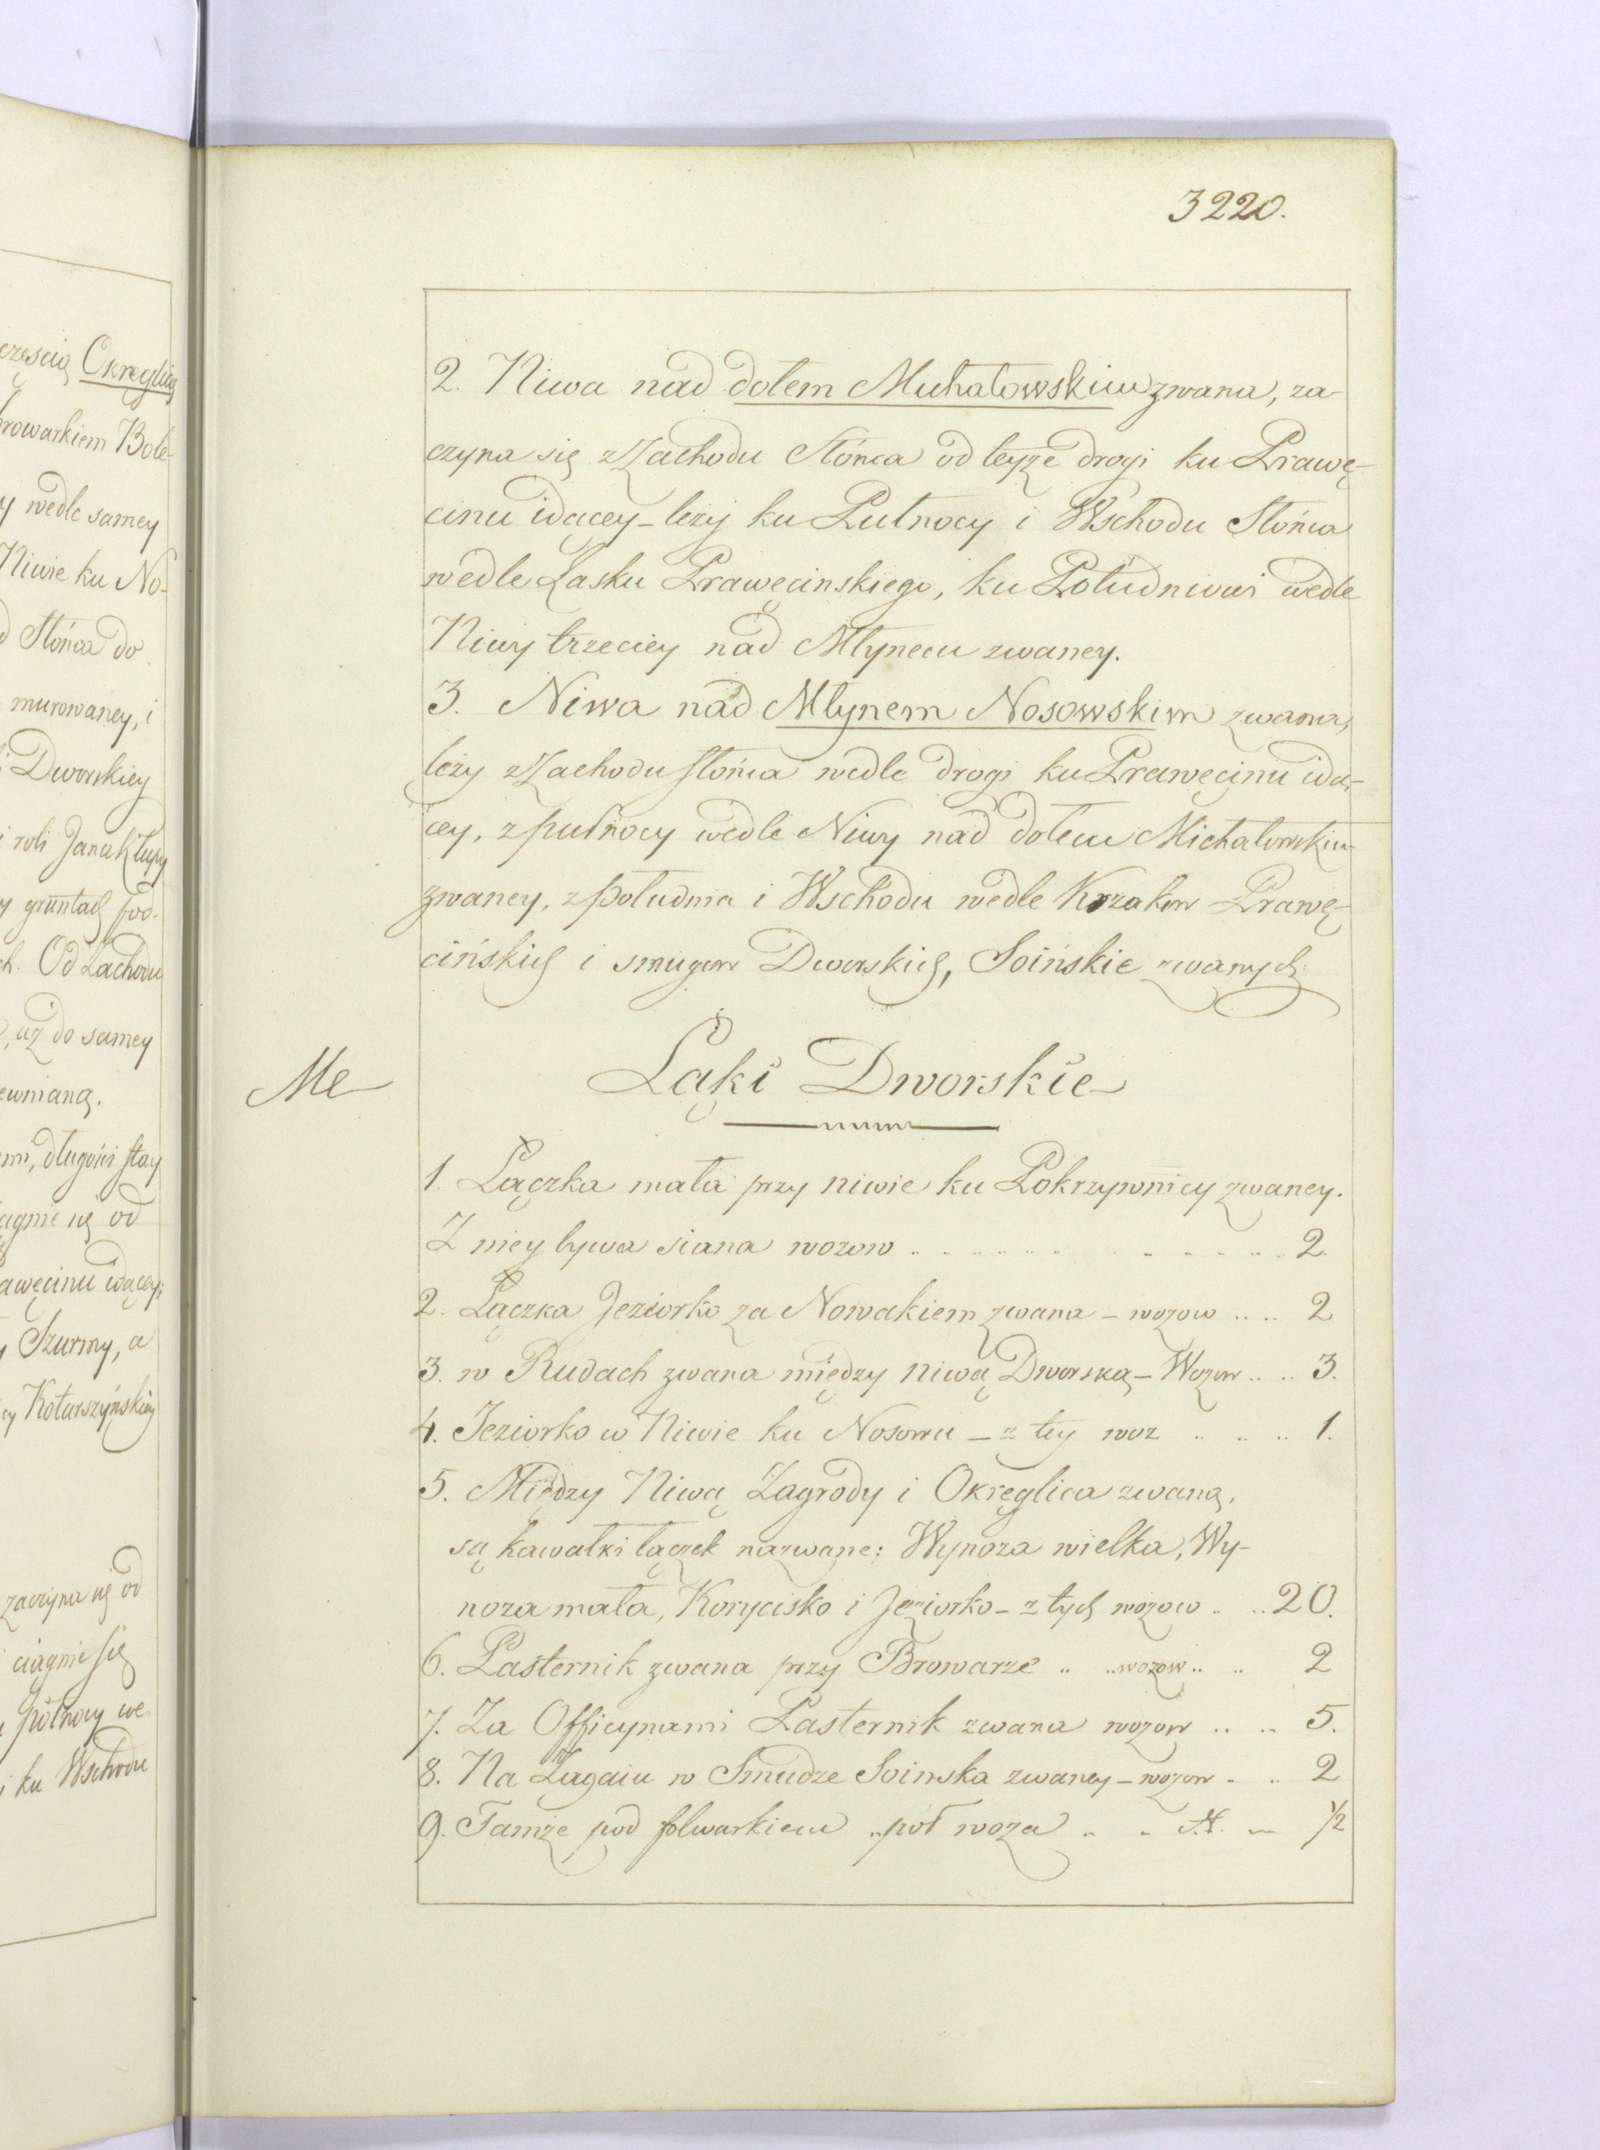 częścią Okręglicą
browarkiem Bole-
y wedle samey
Niwie ku No-
d Słońca do
murowaney, i
i Dworskiey
i roli Jana Kłupy
y gruntach
ch. Od Zachodu
, aż do samey
ewnianą.
mi, długości stay
ciągnie się od
awęcinu idącey
y Szurmy, a
cy Kotarszyńskiey
zaczyna się od
i ciągnie się
, północy we-
i ku Wschodu
3220.
2. Niwa nad dołem Michałowskim zwana, za-
czyna się z Zachodu Słońca od teyże drogi ku Prawę-
cinu idącey – leży ku Pułnocy i Wschodu Słońca
wedle Lasku Prawęcinskiego, ku Południowi wedle
Niwy trzeciey nad Młynem zwaney.
3. Niwa nad Młynem Nosowskim zwana,
leży z Zachodu słońca wedle drogi ku Prawęcinu idą-
cey, z pułnocy wedle Niwy nad dołem Michałowskim
zwaney, z południa i Wschodu wedle Krzaków Prawę-
cińskich i smugow Dworskich, Soińskie zwanych.
Me
Łąki Dworskie
1. Łączka mała przy niwie ku Pokrzywnicy zwaney.
Z niey bywa siana wozow .. .. .. .. 2.
2. Łączka Jeziorko za Nowakiem zwana – wozow .. .. 2
3. w Rudach zwana między niwą Dworską – Wozow .. .. 3.
4. Jeziorko w Niwie ku Nosowu – z tey woz .. .. .. 1.
5. Między Niwą Zagrody i Okręglica zwaną,
są kawałki łączek nazwane: Wynoza wielka, Wy-
noza mała, Korycisko i Jeziorko – z tych wozow .. .. 20.
6. Pasternik zwana przy Browarze .. .. wozow .. .. 2
7. Za Officynami Pasternik zwana wozow .. .. 5.
8. Na Zagaiu w Smudze Soinska zwaney – wozow . .. 2
9. Tamże pod folwarkiem .. pół woza .. .. ½